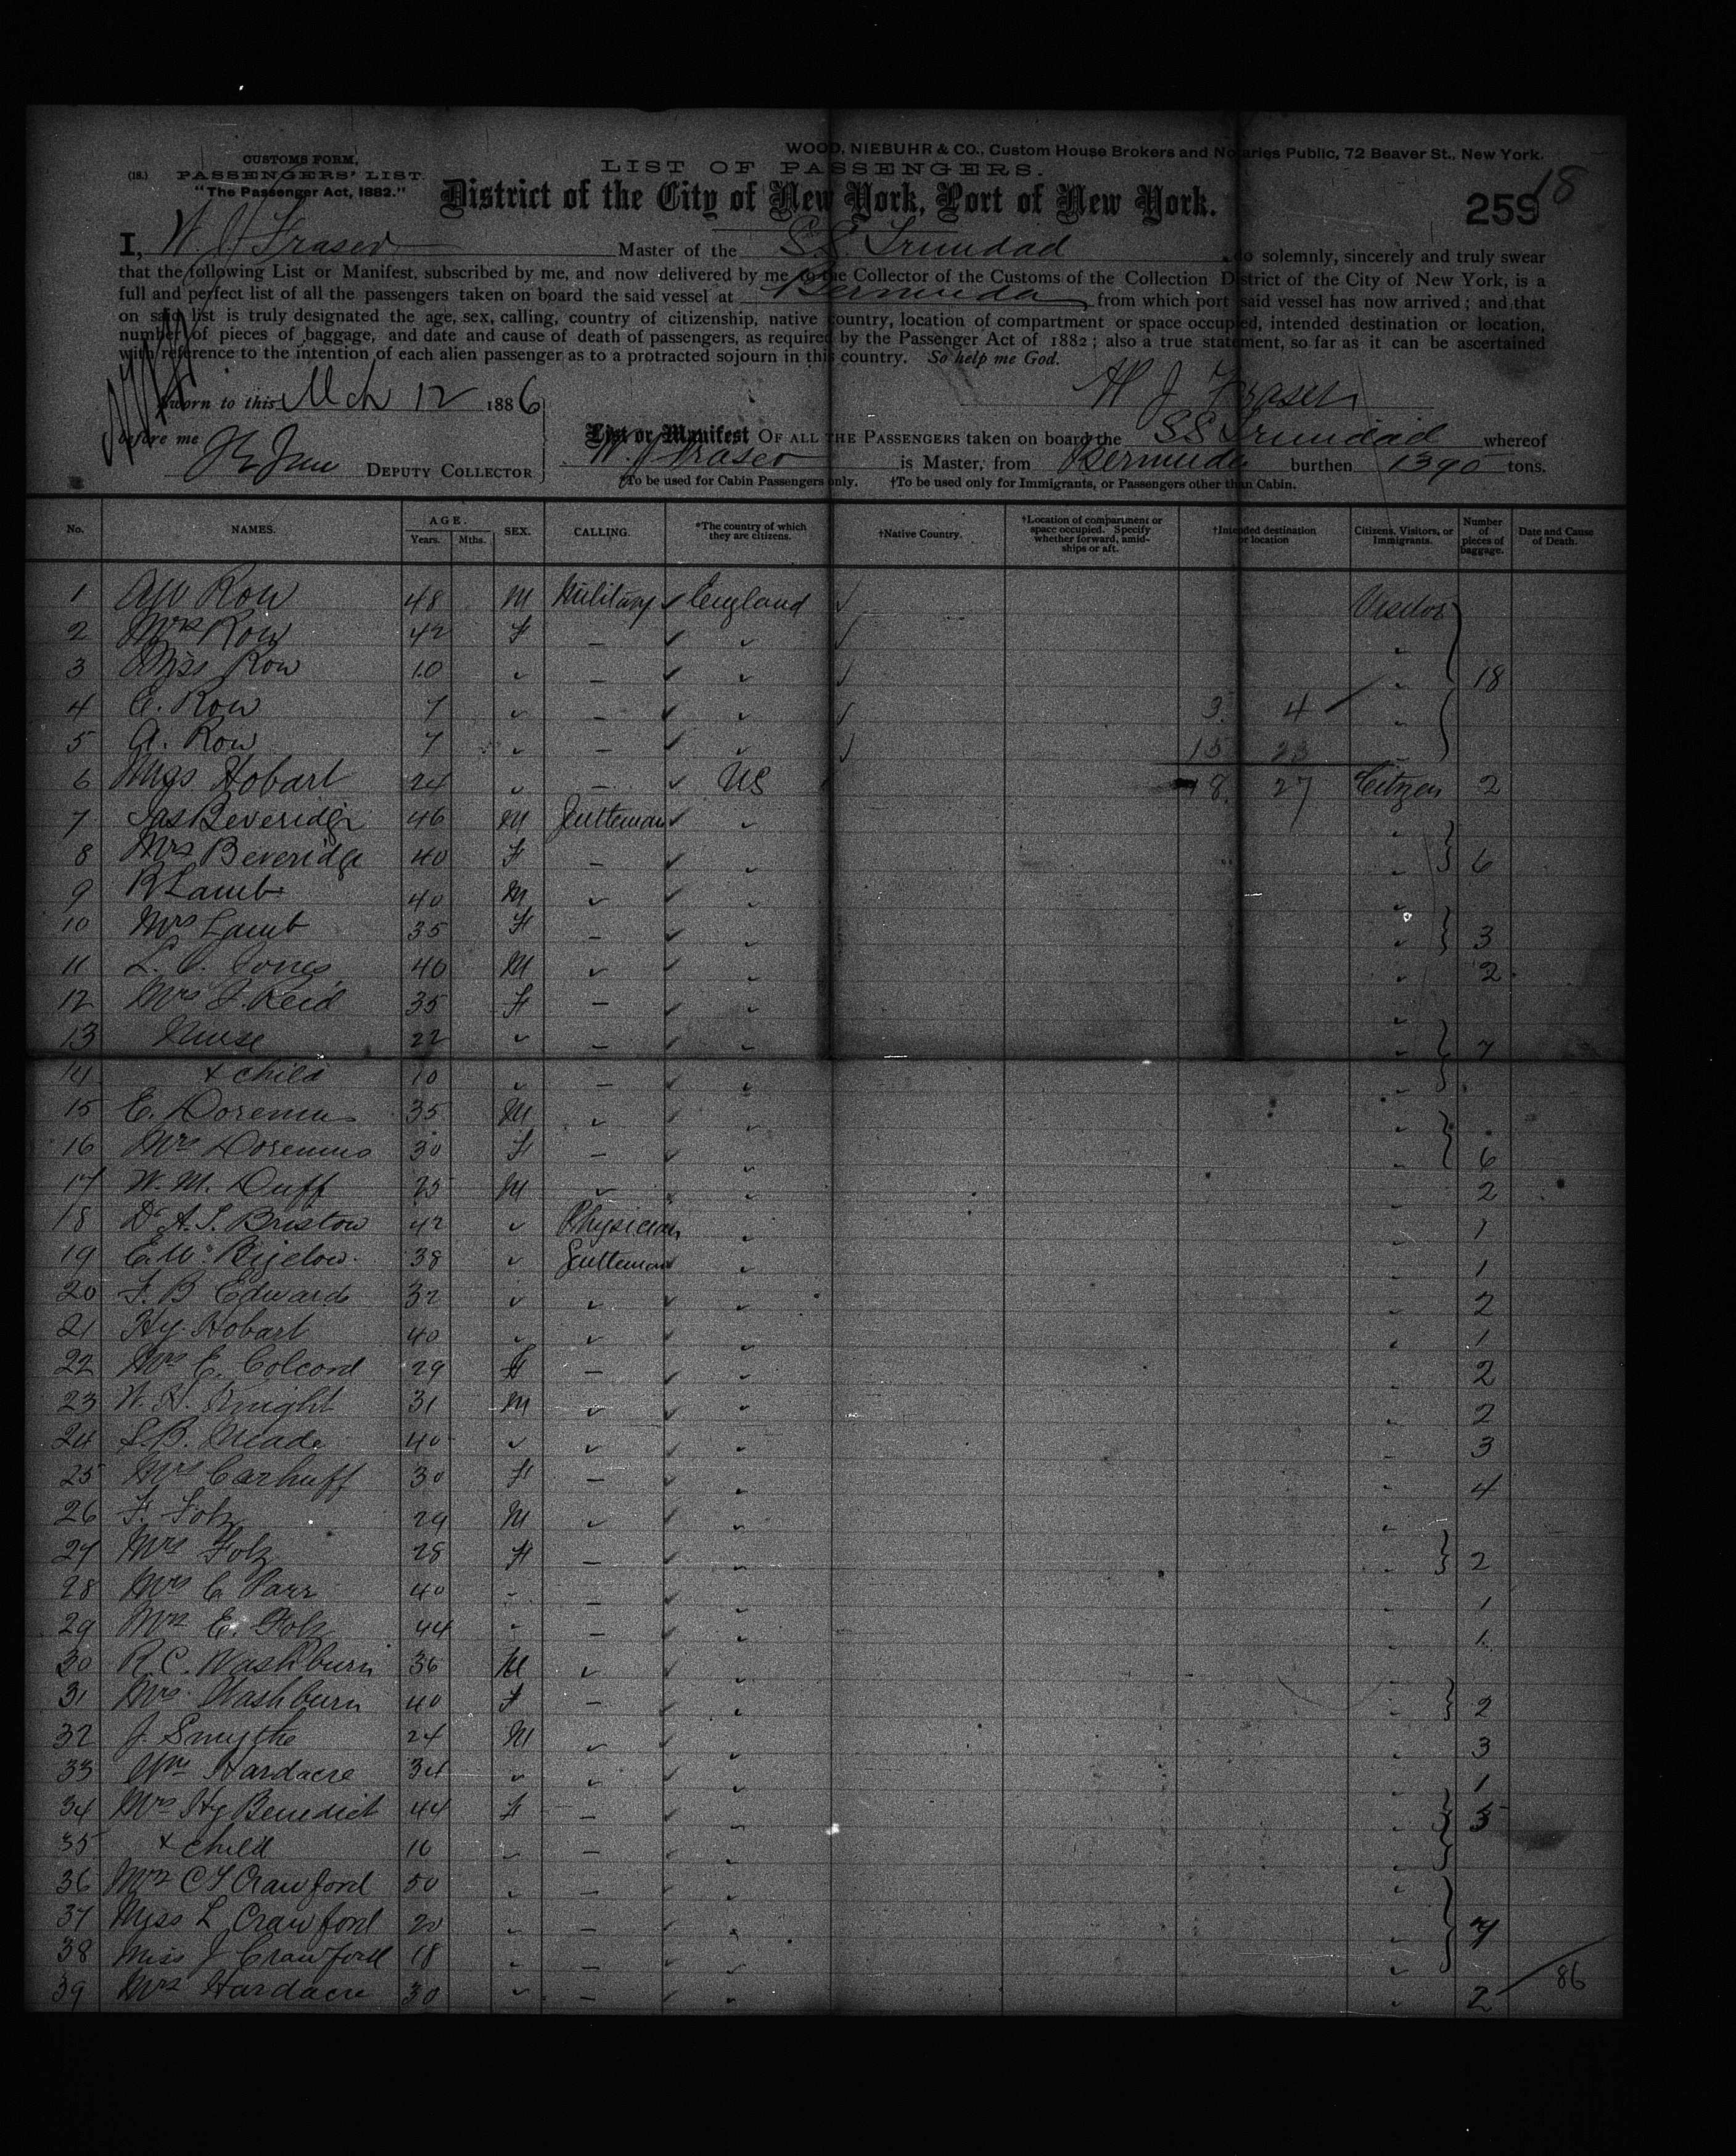 WOOD, NIEBUHR & CO., Custom House Brokers and Notaries Public, 72 Beaver St., New York.
CUSTOMS FORM,
(18.) PASSENGERS' LIST.
"The Passenger Act, 1882."
LIST OF PASSENGERS.
District of the City of New York, Port of New York.
259 18
I, W. J. Fraser Master of the S.S. Trinidad do solemnly, sincerely and truly swear
that the following List or Manifest, subscribed by me, and now delivered by me to the Collector of the Customs of the Collection District of the City of New York, is a
full and perfect list of all the passengers taken on board the said vessel at Bermuda from which port said vessel has now arrived; and that
on said list is truly designated the age, sex, calling, country of citizenship, native country, location of compartment or space occupied, intended destination or location,
number of pieces of baggage, and date and cause of death of passengers, as required by the Passenger Act of 1882; also a true statement, so far as it can be ascertained
with reference to the intention of each alien passenger as to a protracted sojourn in this country. So help me God.
W J Fraser
Sworn to this Mch 12 1886
before me
DEPUTY COLLECTOR
List or Manifest OF ALL THE PASSENGERS taken on board the SS Trinidad whereof
W. J. Fraser is Master, from Bermuda burthen 1390 tons.
*To be used for Cabin Passengers only. †To be used only for Immigrants, or Passengers other than Cabin.
No. NAMES. AGE. Years. Mths. SEX. CALLING. *The country of which they are citizens. †Native Country. †Location of compartment or space occupied. Specify whether forward, amidships or aft. †Intended destination or location Citizens, Visitors, or Immigrants. Number of pieces of baggage. Date and Cause of Death.
1 AW Row 48 M Military England Visitor
2 Mrs Row 42 F — " "
3 Miss Row 10 " — " " 18
4 E. Row 7 " — " 3 4 "
5 A. Row 7 " — " 15 23 "
6 Miss Hobart 24 " — US 18 27 Citizen 2
7 Jas Beveridge 46 M Gentleman " "
8 Mrs Beveridge 40 F — " " 6
9 R Lamb 40 M " " "
10 Mrs Lamb 35 F — " " 3
11 L. Jones 40 M " " " 2
12 Mrs J. Reid 35 F — " "
13 Nurse 22 " — " " 7
14 + child 10 " — " "
15 E. Doremus 35 M " " "
16 Mrs Doremus 30 F — " " 6
17 W. M. Duff 25 M " " " 2
18 Dr A. S. Bristow 42 " Physician " " 1
19 E. W. Bigelow 38 " Gentleman " " 1
20 F. B Edwards 32 " " " " 2
21 Hy Hobart 40 " " " " 1
22 Mrs E. Colcord 29 F — " " 2
23 W. H. Knight 31 M " " " 2
24 S. B. Meade 40 " " " " 3
25 Mrs Carhuff 30 F — " " 4
26 F. Folz 29 M " " "
27 Mrs Folz 28 F — " " 2
28 Mrs C Parr 40 " — " " 1
29 Mrs E. Folz 44 " — " " 1
30 R. C. Washburn 36 M " " "
31 Mrs Washburn 40 F — " " 2
32 J. Smythe 24 M " " " 3
33 Wm Hardacre 34 " " " " 1
34 Mrs Hy Benedict 44 F — " " 5
35 + child 10 " — " "
36 Mrs C S Crawford 50 " — " "
37 Miss L Crawford 20 " — " " 7
38 Miss J Crawford 18 " — " "
39 Mrs Hardacre 30 " — " " 2 86